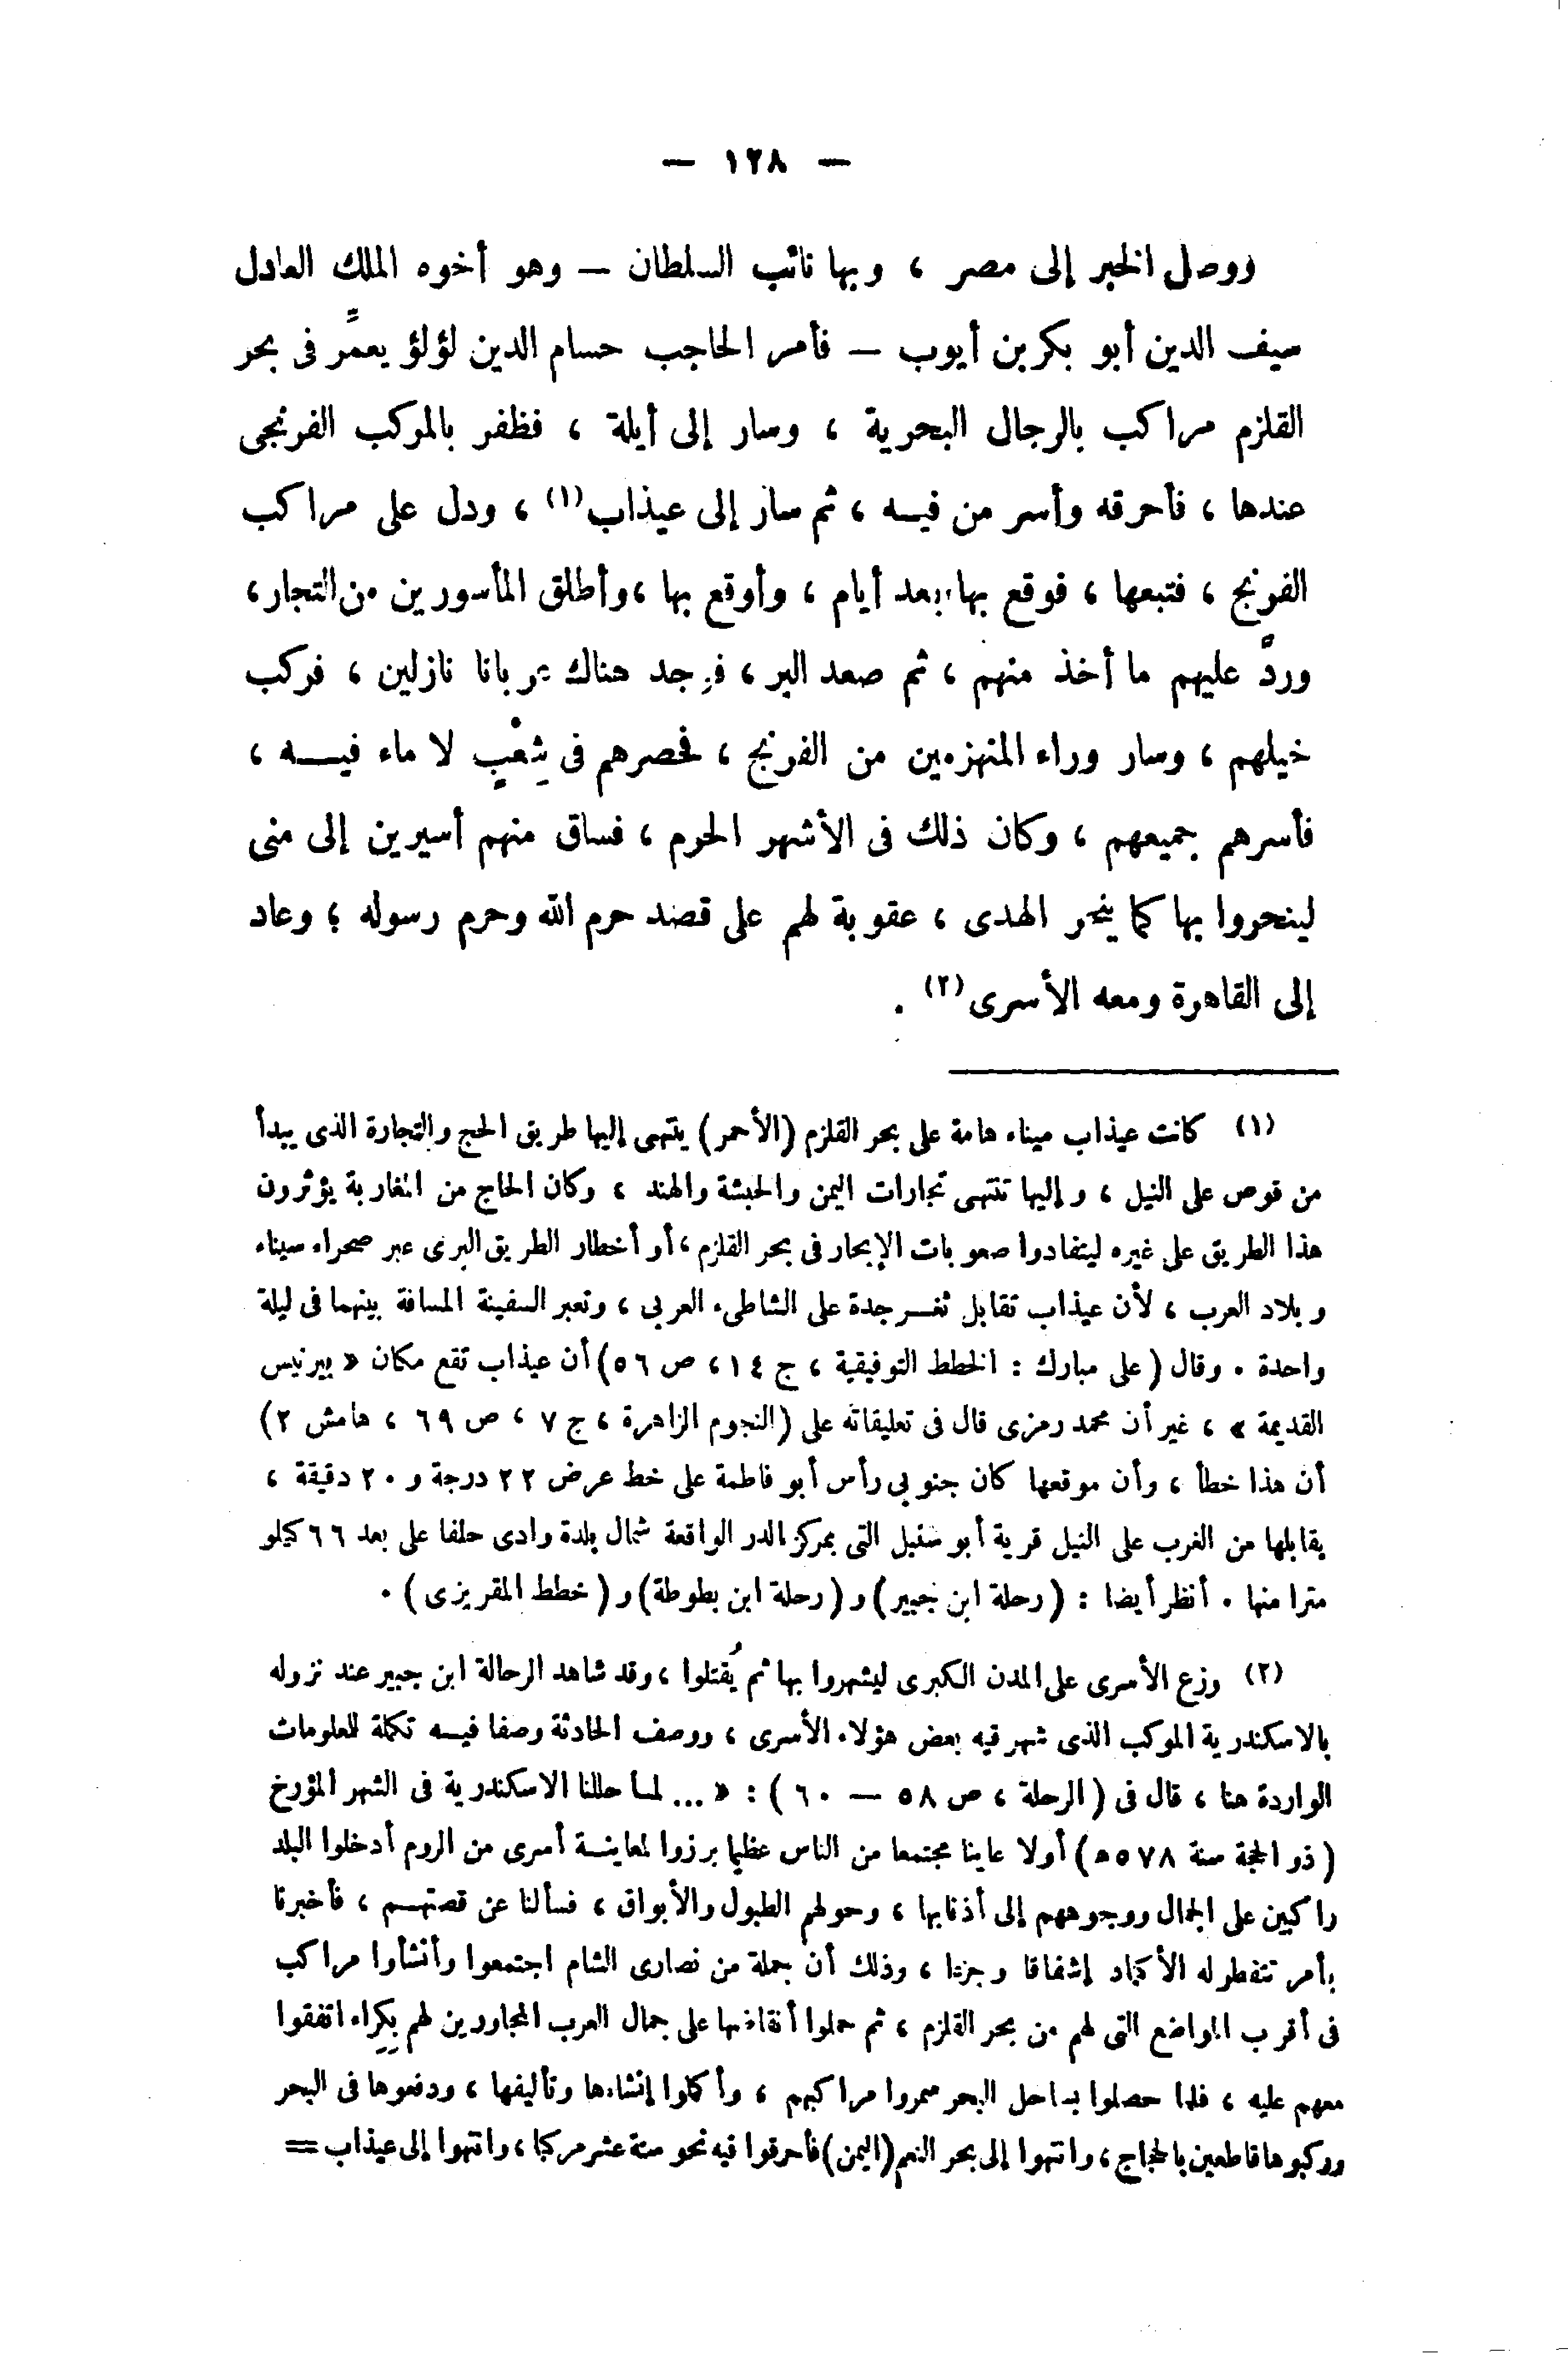 — ١٢٨ —
ووصل الخبر إلى مصر ، وبها نائب السلطان — وهو أخوه الملك العادل
سيف الدين أبو بكر بن أيوب — فأمر الحاجب حسام الدين لؤلؤ يعمِّر فى بحر
القلزم مراكب بالرجال البحرية ، وسار إلى أيلة ، فظفر بالمركب الفرنجى
عندها ، فأحرقه وأسر من فيه ، ثم سار إلى عيذاب(١) ، ودل على مراكب
الفرنج ، فتبعها ، فوقع بها بعد أيام ، وأوقع بها ، وأطلق المأسورين من التجار ،
وردّ عليهم ما أخذ منهم ، ثم صعد البر ، فوجد هناك عربانا نازلين ، فركب
خيلهم ، وسار وراء المنهزمين من الفرنج ، فحصرهم فى شِعْبٍ لا ماء فيه ،
فأسرهم جميعهم ، وكان ذلك فى الأشهر الحرم ، فساق منهم أسيرين إلى منى
لينحروا بها كما ينحر الهدى ، عقوبة لهم على قصد حرم الله وحرم رسوله ؛ وعاد
إلى القاهرة ومعه الأسرى(٢) .
(١) كانت عيذاب ميناء هامة على بحر القلزم (الأحمر) ينتهى إليها طريق الحج والتجارة الذى يبدأ
من قوص على النيل ، وإليها تنتهى تجارات اليمن والحبشة والهند ، وكان الحاج من المغاربة يؤثرون
هذا الطريق على غيره ليتفادوا صعوبات الإبحار فى بحر القلزم ، أو أخطار الطريق البرى عبر صحراء سيناء
وبلاد العرب ، لأن عيذاب تقابل ثغر جدة على الشاطىء العربى ، وتعبر السفينة المسافة بينهما فى ليلة
واحدة . وقال (على مبارك : الخطط التوفيقية ، ج ١٤ ، ص ٥٦) أن عيذاب تقع مكان « بيرنيس
القديمة » ، غير أن محمد رمزى قال فى تعليقاته على (النجوم الزاهرة ، ج ٧ ، ص ٦٩ ، هامش ٢)
أن هذا خطأ ، وأن موقعها كان جنوبى رأس أبو فاطمة على خط عرض ٢٢ درجة و ٢٠ دقيقة ،
يقابلها من الغرب على النيل قرية أبو سنبل التى بمركز الدر الواقعة شمال بلدة وادى حلفا على بعد ٦٦ كيلو
مترا منها . أنظر أيضا : (رحلة ابن جبير) و (رحلة ابن بطوطة) و (خطط المقريزى) .
(٢) وزع الأسرى على المدن الكبرى ليشهروا بها ثم يُقتلوا ، وقد شاهد الرحالة ابن جبير عند نزوله
بالاسكندرية الموكب الذى شهر فيه بعض هؤلاء الأسرى ، ووصف الحادثة وصفا فيه تكملة للمعلومات
الواردة هنا ، قال فى (الرحلة ، ص ٥٨ — ٦٠) : « ... لما حللنا الاسكندرية فى الشهر المؤرخ
(ذو الحجة سنة ٥٧٨ هـ) أولا عاينا مجتمعا من الناس عظيما برزوا لمعاينة أسرى من الروم أدخلوا البلد
راكبين على الجمال ووجوههم إلى أذنابها ، وحولهم الطبول والأبواق ، فسألنا عن قصتهم ، فأخبرنا
بأمر تتفطر له الأكباد إشفاقا وجزعا ، وذلك أن جملة من نصارى الشام اجتمعوا وأنشأوا مراكب
فى أقرب المواضع التى لهم من بحر القلزم ، ثم حملوا أنقاضها على جمال العرب المجاورين لهم بِكِراء اتفقوا
معهم عليه ، فلما حصلوا بساحل البحر سمروا مراكبهم ، وأكملوا إنشاءها وتأليفها ، ودفعوها فى البحر
وركبوها قاطعين بالحجاج ، وانتهوا إلى بحر النعم (اليمن) فأحرقوا فيه نحو ستة عشر مركبا ، وانتهوا إلى عيذاب =